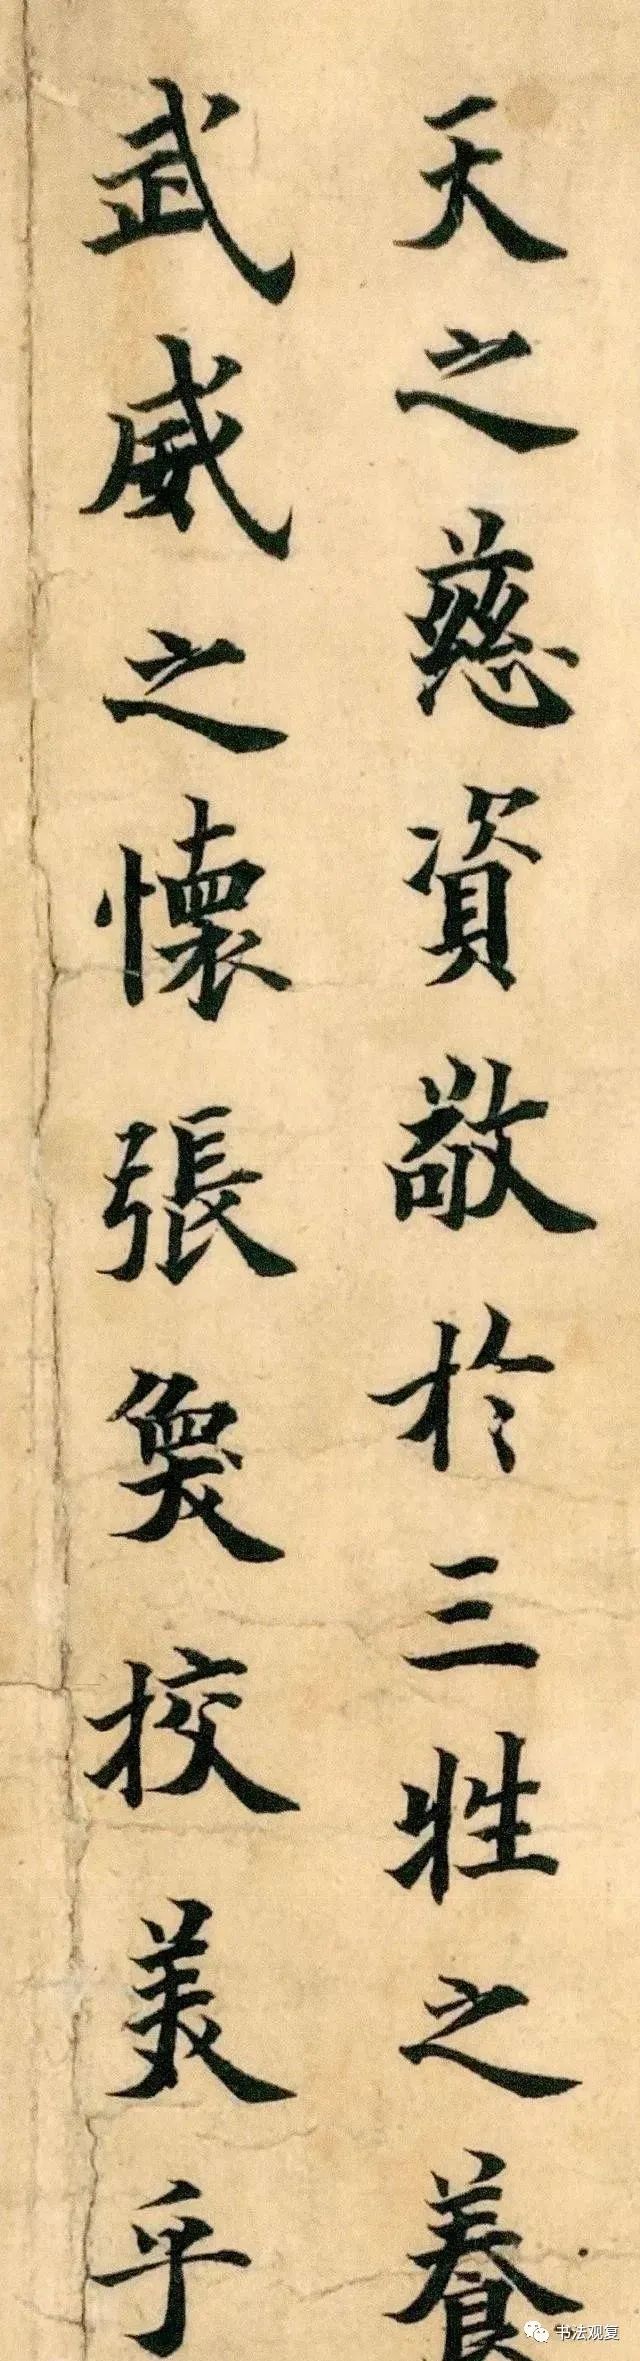 天之慈資敬於三牲之養
武威之懷張奐校美乎
书法观复